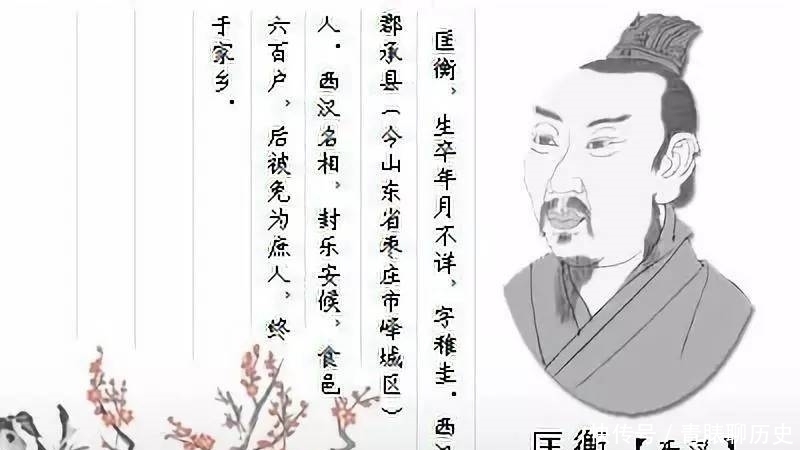 匡衡，生卒年月不详，字稚圭．西汉
郡承县（今山东省枣庄市峄城区）
人．西汉名相，封乐安候，食邑
六百户，后被免为庶人，终
于家乡．
匡衡【西汉
聊历史